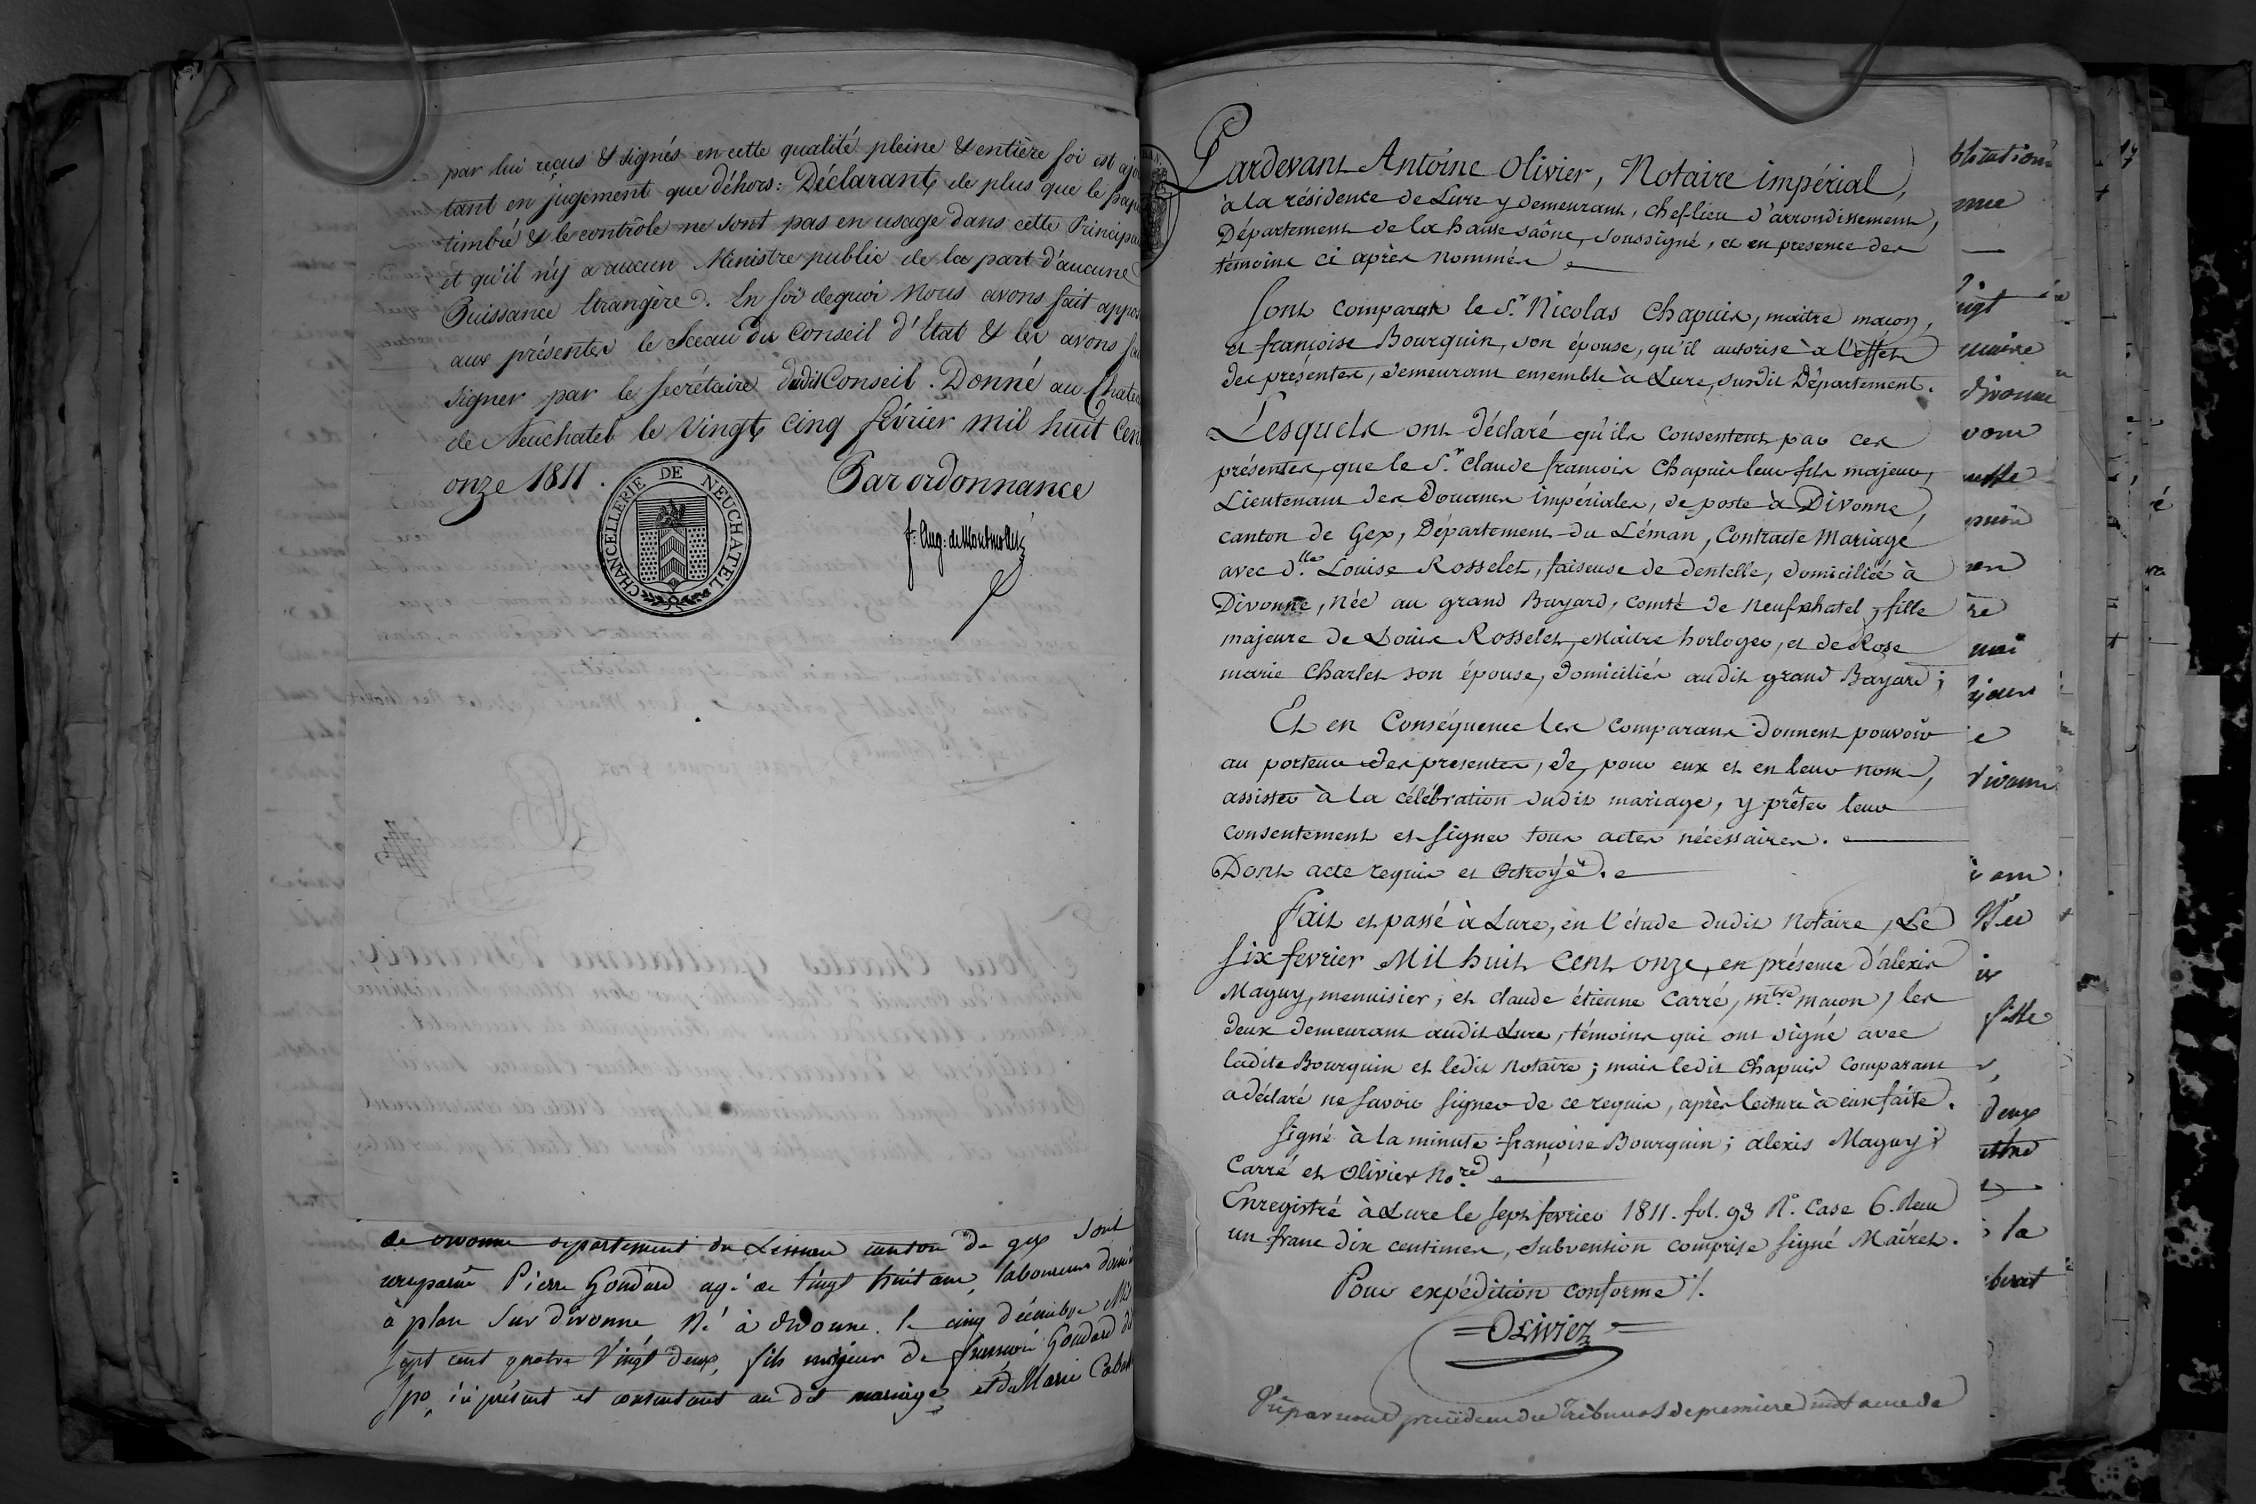 par lui reçus & signés en cette qualité pleine & entière foi est ajou
tant en jugement que déhors: Déclarant de plus que le papier
timbré & le contrôle ne sont pas en usage dans cette Principau
et qu'il n'y a aucun Ministre public de la part d'aucune
Puissance Etrangère. En foi dequoi Nous avons fait appos
aux présentes le Sceau du Conseil d'Etat & les avons fai
signer par le Secrétaire dudit Conseil. Donné au Chatea
de Neuchatel le Vingt cinq février mil huit Cent
onze 1811.
Par ordonnance
CHANCELLERIE DE NEUCHATEL
f: Aug: de Montmollin
de divonne departement du Leman canton de gex sont
comparus Pierre Goudard agé de vingt huit ans, laboureur domi
à plan sur divonne Né à divonne le cinq décembre Mil
Sept cent quatre Vingt deux, fils majeur de Goudard
ici présent et consentant au dit mariage et de Marie
Pardevant Antoine Olivier, Notaire impérial,
à la résidence de Lure y demeurant, chef-lieu d'arrondissement,
Département de la haute saône, soussigné, et en presence des
témoins ci après nommés
Sont comparus le S.r Nicolas Chapuis, maître maçon,
et françoise Bourquin, son épouse, qu'il autorise à l'effet
des présentes, demeurant ensemble à Lure, susdit Département.
Lesquels ont déclaré qu'ils consentent par ces
présentes, que le S.r Claude françois Chapuis leur fils majeur,
Lieutenant des Douanes impériales, de poste à Divonne,
canton de Gex, Département du Léman, Contracte Mariage
avec d.lle Louise Rosselet, faiseuse de dentelle, domiciliée à
Divonne, née au grand Bayard, comté de neufchatel, fille
majeure de Louis Rosselet, Maître horloger, et de Rose
marie Charlet son épouse, domiciliés audit grand Bayard;
Et en Conséquence les comparans donnent pouvoir
au porteur des presentes, de, pour eux et en leur nom,
assister à la célébration dudit mariage, y prêter leur
consentement et signer tous actes nécessaires.
Dont acte requis et octroyé.
Fait et passé à Lure, en l'étude dudit Notaire, Le
six fevrier Mil huit cent onze, en présence d'alexis
Maguy, menuisier, et claude étienne Carré, m.tre maçon, les
deux demeurant audit Lure, témoins qui ont signé avec
ladite Bourquin et ledit notaire; mais ledit Chapuis comparant
a déclaré ne savoir signer de ce requis, après lecture à eux faite.
Signé à la minute françoise Bourquin; alexis Maguy;
Carré et Olivier No.re
Enregistré à Lure le sept fevrier 1811. fol. 93 R.o Case 6. Reçu
un franc dix centimes, subvention comprise signé Mairet.
Pour expédition conforme /.
OLIVIER
Vu par nous président du Tribunal de premiere instance de